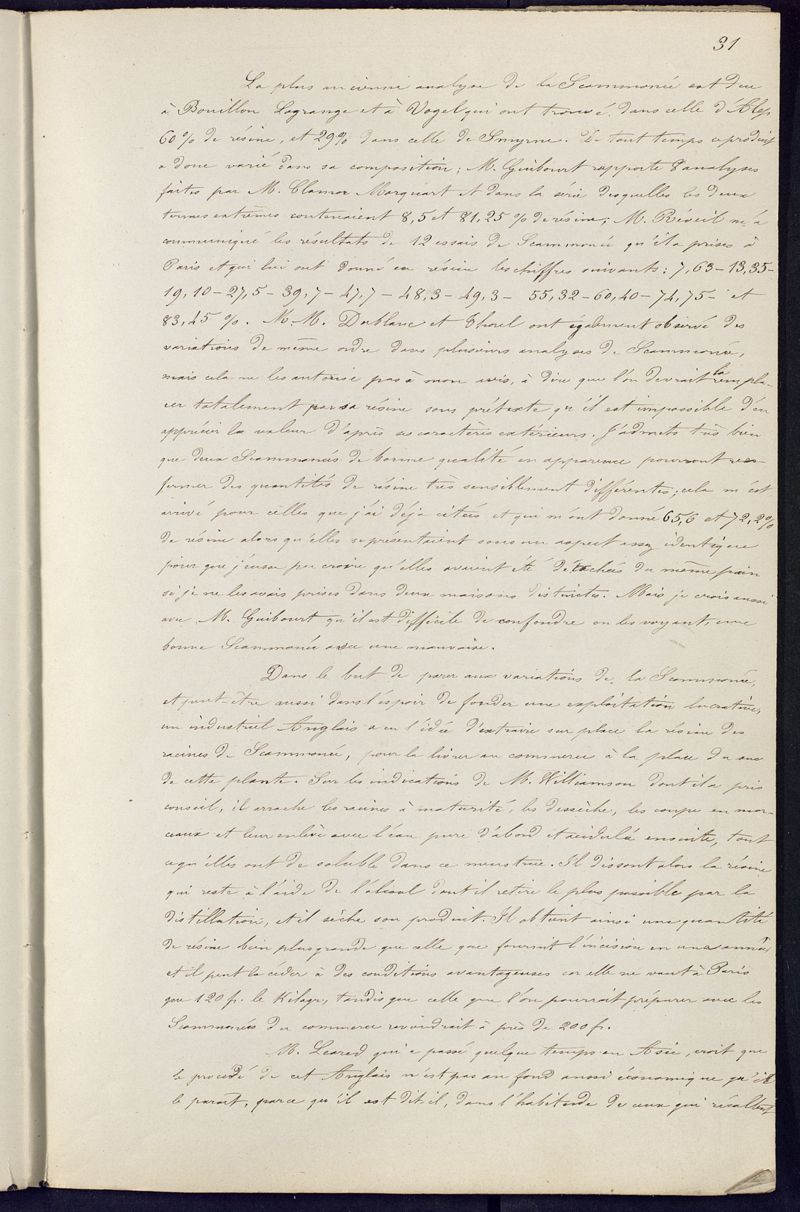 31
La plus ancienne analyse de la Scammonée est due
à Bouillon Lagrange et à Vogel qui ont trouvé, dans celle d'Alep
60 % de résine, et 29 % dans celle de Smyrne. De tout temps ce produit
a donc varié dans sa composition ; M. Guibourt rapporte 8 analyses
faites par M. Clamor Marquart et dans la série desquelles les deux
termes extrêmes contenaient 8,5 et 81,25 % de résine ; M. Reveil m'a
communiqué les résultats de 12 essais de Scammonée qu'il a prises à
Paris et qui lui ont donné en résine les chiffres suivants : 7,63 - 13,35 -
19,10 - 27,5 - 39,7 - 47,7 - 48,3 - 49,3 - 55,32 - 60,40 - 74,75 - et
83,45 %. M. M. Dublanc et Thorel ont également observé des
variations de même ordre dans plusieurs analyses de Scammonée,
mais cela ne les autorise pas à mon avis, à dire que l'on devrait la rempla-
cer totalement par sa résine sous prétexte qu'il est impossible d'en
apprécier la valeur d'après ses caractères extérieurs. J'admets très bien
que deux Scammonées de bonne qualité en apparence pourront ren-
fermer des quantités de résine très sensiblement différentes ; cela m'est
arrivé pour celles que j'ai déjà citées et qui m'ont donné 65,6 et 72,2 %
de résine alors qu'elles se présentaient sous un aspect assez identique
pour que j'eusse pu croire qu'elles avaient été détachées du même pain
si je ne les avais prises dans deux maisons distinctes. Mais je crois aussi
avec M. Guibourt qu'il est difficile de confondre en les voyant, une
bonne Scammonée avec une mauvaise.
Dans le but de parer aux variations de la Scammonée,
et peut-être aussi dans l'espoir de fonder une exploitation lucrative,
un industriel Anglais a eu l'idée d'extraire sur place la résine des
racines de Scammonée, pour la livrer au commerce à la place du suc
de cette plante. Sur les indications de M. Williamson dont il a pris
conseil, il arrache les racines à maturité, les dessèche, les coupe en mor-
ceaux et leur enlève avec l'eau pure d'abord et acidulée ensuite, tout
ce qu'elles ont de soluble dans ce menstrue. Il dissout alors la résine
qui reste à l'aide de l'alcool dont il retire le plus possible par la
distillation, et il sèche son produit. Il obtient ainsi une quantité
de résine bien plus grande que celle que fournit l'incision en une année
et il peut la céder à des conditions avantageuses car elle ne vaut à Paris
que 120 f. le Kilogr, tandis que celle que l'on pourrait préparer avec les
Scammonées du commerce reviendrait à près de 200 fr.
M. Leared qui a passé quelque temps en Asie, croit que
le procédé de cet Anglais n'est pas au fond aussi économique qu'il
le paraît, parce qu'il est dit-il, dans l'habitude de ceux qui récoltent